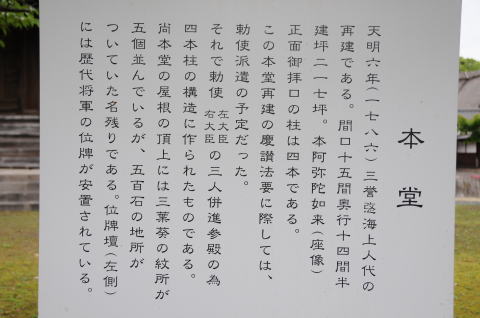 本堂
天明六年(一七八六)三誉愍海上人代の
再建である。間口十五間奥行十四間半
建坪二一七坪。本阿弥陀如来(座像)
正面御拝口の柱は四本である。
この本堂再建の慶讃法要に際しては、
勅使派遣の予定だった。
それで勅使 左大臣 右大臣 の三人併進参殿の為
四本柱の構造に作られたものである。
尚本堂の屋根の頂上には三葉葵の紋所が
五個並んでいるが、五百石の地所が
ついていた名残りである。位牌壇(左側)
には歴代将軍の位牌が安置されている。